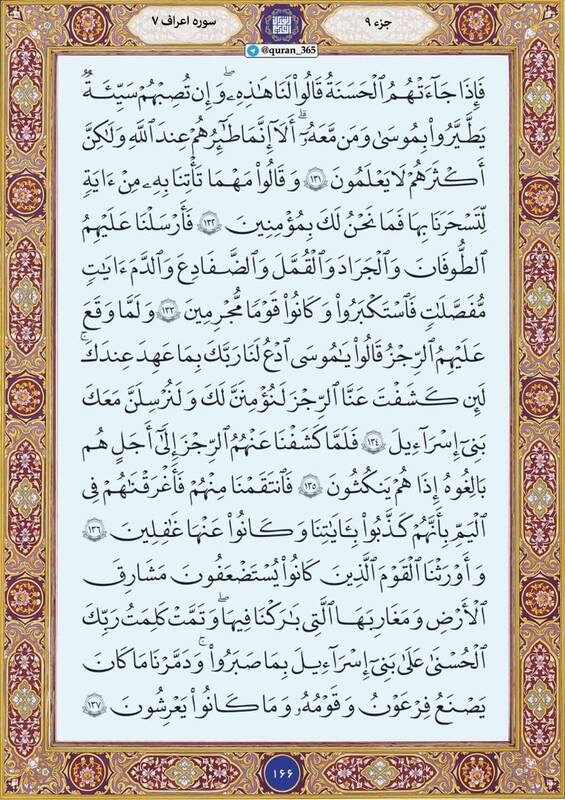 جزء ۹
سوره اعراف ۷
@quran_365
فَإِذَا جَآءَتْهُمُ ٱلْحَسَنَةُ قَالُوا۟ لَنَا هَـٰذِهِۦ ۖ وَإِن تُصِبْهُمْ سَيِّئَةٌ
يَطَّيَّرُوا۟ بِمُوسَىٰ وَمَن مَّعَهُۥٓ ۗ أَلَآ إِنَّمَا طَـٰٓئِرُهُمْ عِندَ ٱللَّهِ وَلَـٰكِنَّ
أَكْثَرَهُمْ لَا يَعْلَمُونَ ۝١٣١ وَقَالُوا۟ مَهْمَا تَأْتِنَا بِهِۦ مِنْ ءَايَةٍ
لِّتَسْحَرَنَا بِهَا فَمَا نَحْنُ لَكَ بِمُؤْمِنِينَ ۝١٣٢ فَأَرْسَلْنَا عَلَيْهِمُ
ٱلطُّوفَانَ وَٱلْجَرَادَ وَٱلْقُمَّلَ وَٱلضَّفَادِعَ وَٱلدَّمَ ءَايَـٰتٍ
مُّفَصَّلَـٰتٍ فَٱسْتَكْبَرُوا۟ وَكَانُوا۟ قَوْمًا مُّجْرِمِينَ ۝١٣٣ وَلَمَّا وَقَعَ
عَلَيْهِمُ ٱلرِّجْزُ قَالُوا۟ يَـٰمُوسَى ٱدْعُ لَنَا رَبَّكَ بِمَا عَهِدَ عِندَكَ ۖ
لَئِن كَشَفْتَ عَنَّا ٱلرِّجْزَ لَنُؤْمِنَنَّ لَكَ وَلَنُرْسِلَنَّ مَعَكَ
بَنِىٓ إِسْرَٰٓءِيلَ ۝١٣٤ فَلَمَّا كَشَفْنَا عَنْهُمُ ٱلرِّجْزَ إِلَىٰٓ أَجَلٍ هُم
بَـٰلِغُوهُ إِذَا هُمْ يَنكُثُونَ ۝١٣٥ فَٱنتَقَمْنَا مِنْهُمْ فَأَغْرَقْنَـٰهُمْ فِى
ٱلْيَمِّ بِأَنَّهُمْ كَذَّبُوا۟ بِـَٔايَـٰتِنَا وَكَانُوا۟ عَنْهَا غَـٰفِلِينَ ۝١٣٦
وَأَوْرَثْنَا ٱلْقَوْمَ ٱلَّذِينَ كَانُوا۟ يُسْتَضْعَفُونَ مَشَـٰرِقَ
ٱلْأَرْضِ وَمَغَـٰرِبَهَا ٱلَّتِى بَـٰرَكْنَا فِيهَا ۖ وَتَمَّتْ كَلِمَتُ رَبِّكَ
ٱلْحُسْنَىٰ عَلَىٰ بَنِىٓ إِسْرَٰٓءِيلَ بِمَا صَبَرُوا۟ ۖ وَدَمَّرْنَا مَا كَانَ
يَصْنَعُ فِرْعَوْنُ وَقَوْمُهُۥ وَمَا كَانُوا۟ يَعْرِشُونَ ۝١٣٧
۱۶۶